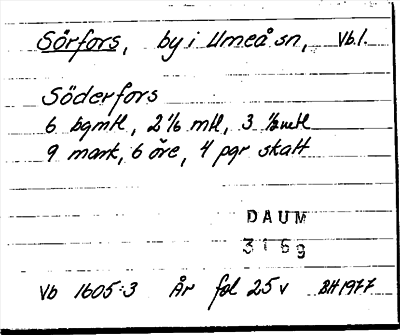 Sörfors, by i Umeå sn, Vb.l.
Söderfors
6 bgmtl, 2 1/6 mtl, 3 1/2 mtl
9 mark, 6 öre, 4 pgr skatt
DAUM
3169
Vb 1605:3 År fol 25 v BH 1977